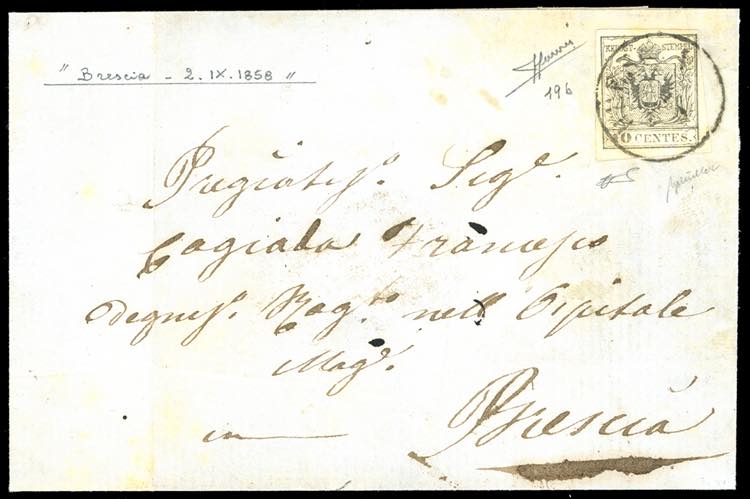 " Brescia - 2. IX. 1858 "
196
KKPOST-STEMPEL
10 CENTES.
Pregiatisso. Sigr.
Cagiada Francesco
degnisso. Ragto. nell Ospitale
Magr.
in
Brescia